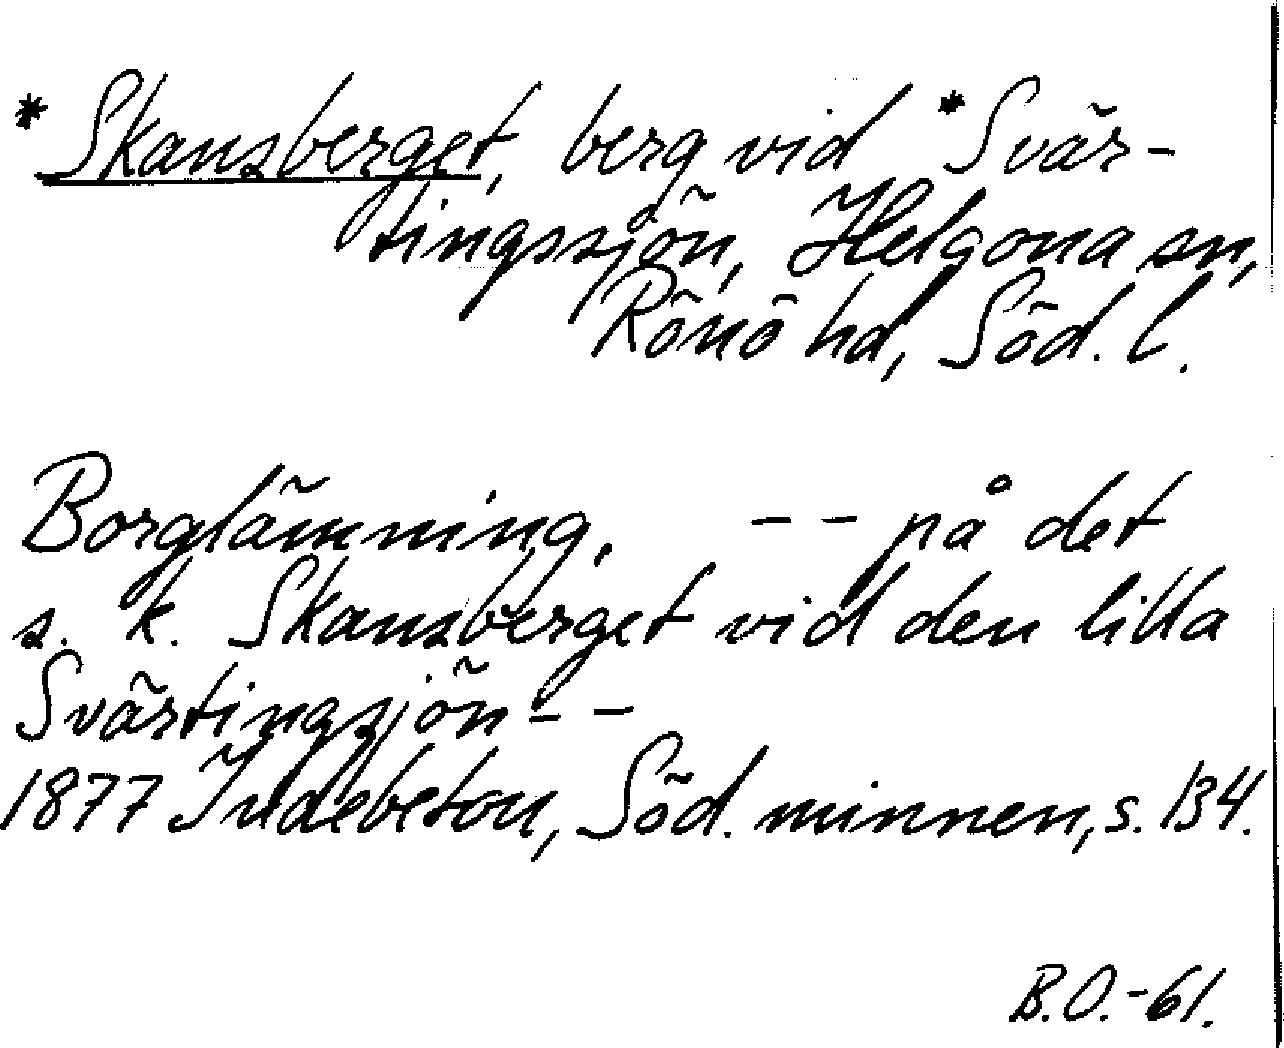 * Skansberget, berg vid * Svär-
tingssjön, Helgona sn,
Rönö hd, Söd. l.
Borglämning, -- på det
s. k. Skansberget vid den lilla
Svärtingsjön --
1877 Indebetou, Söd. minnen, s. 134.
B.O.-61.